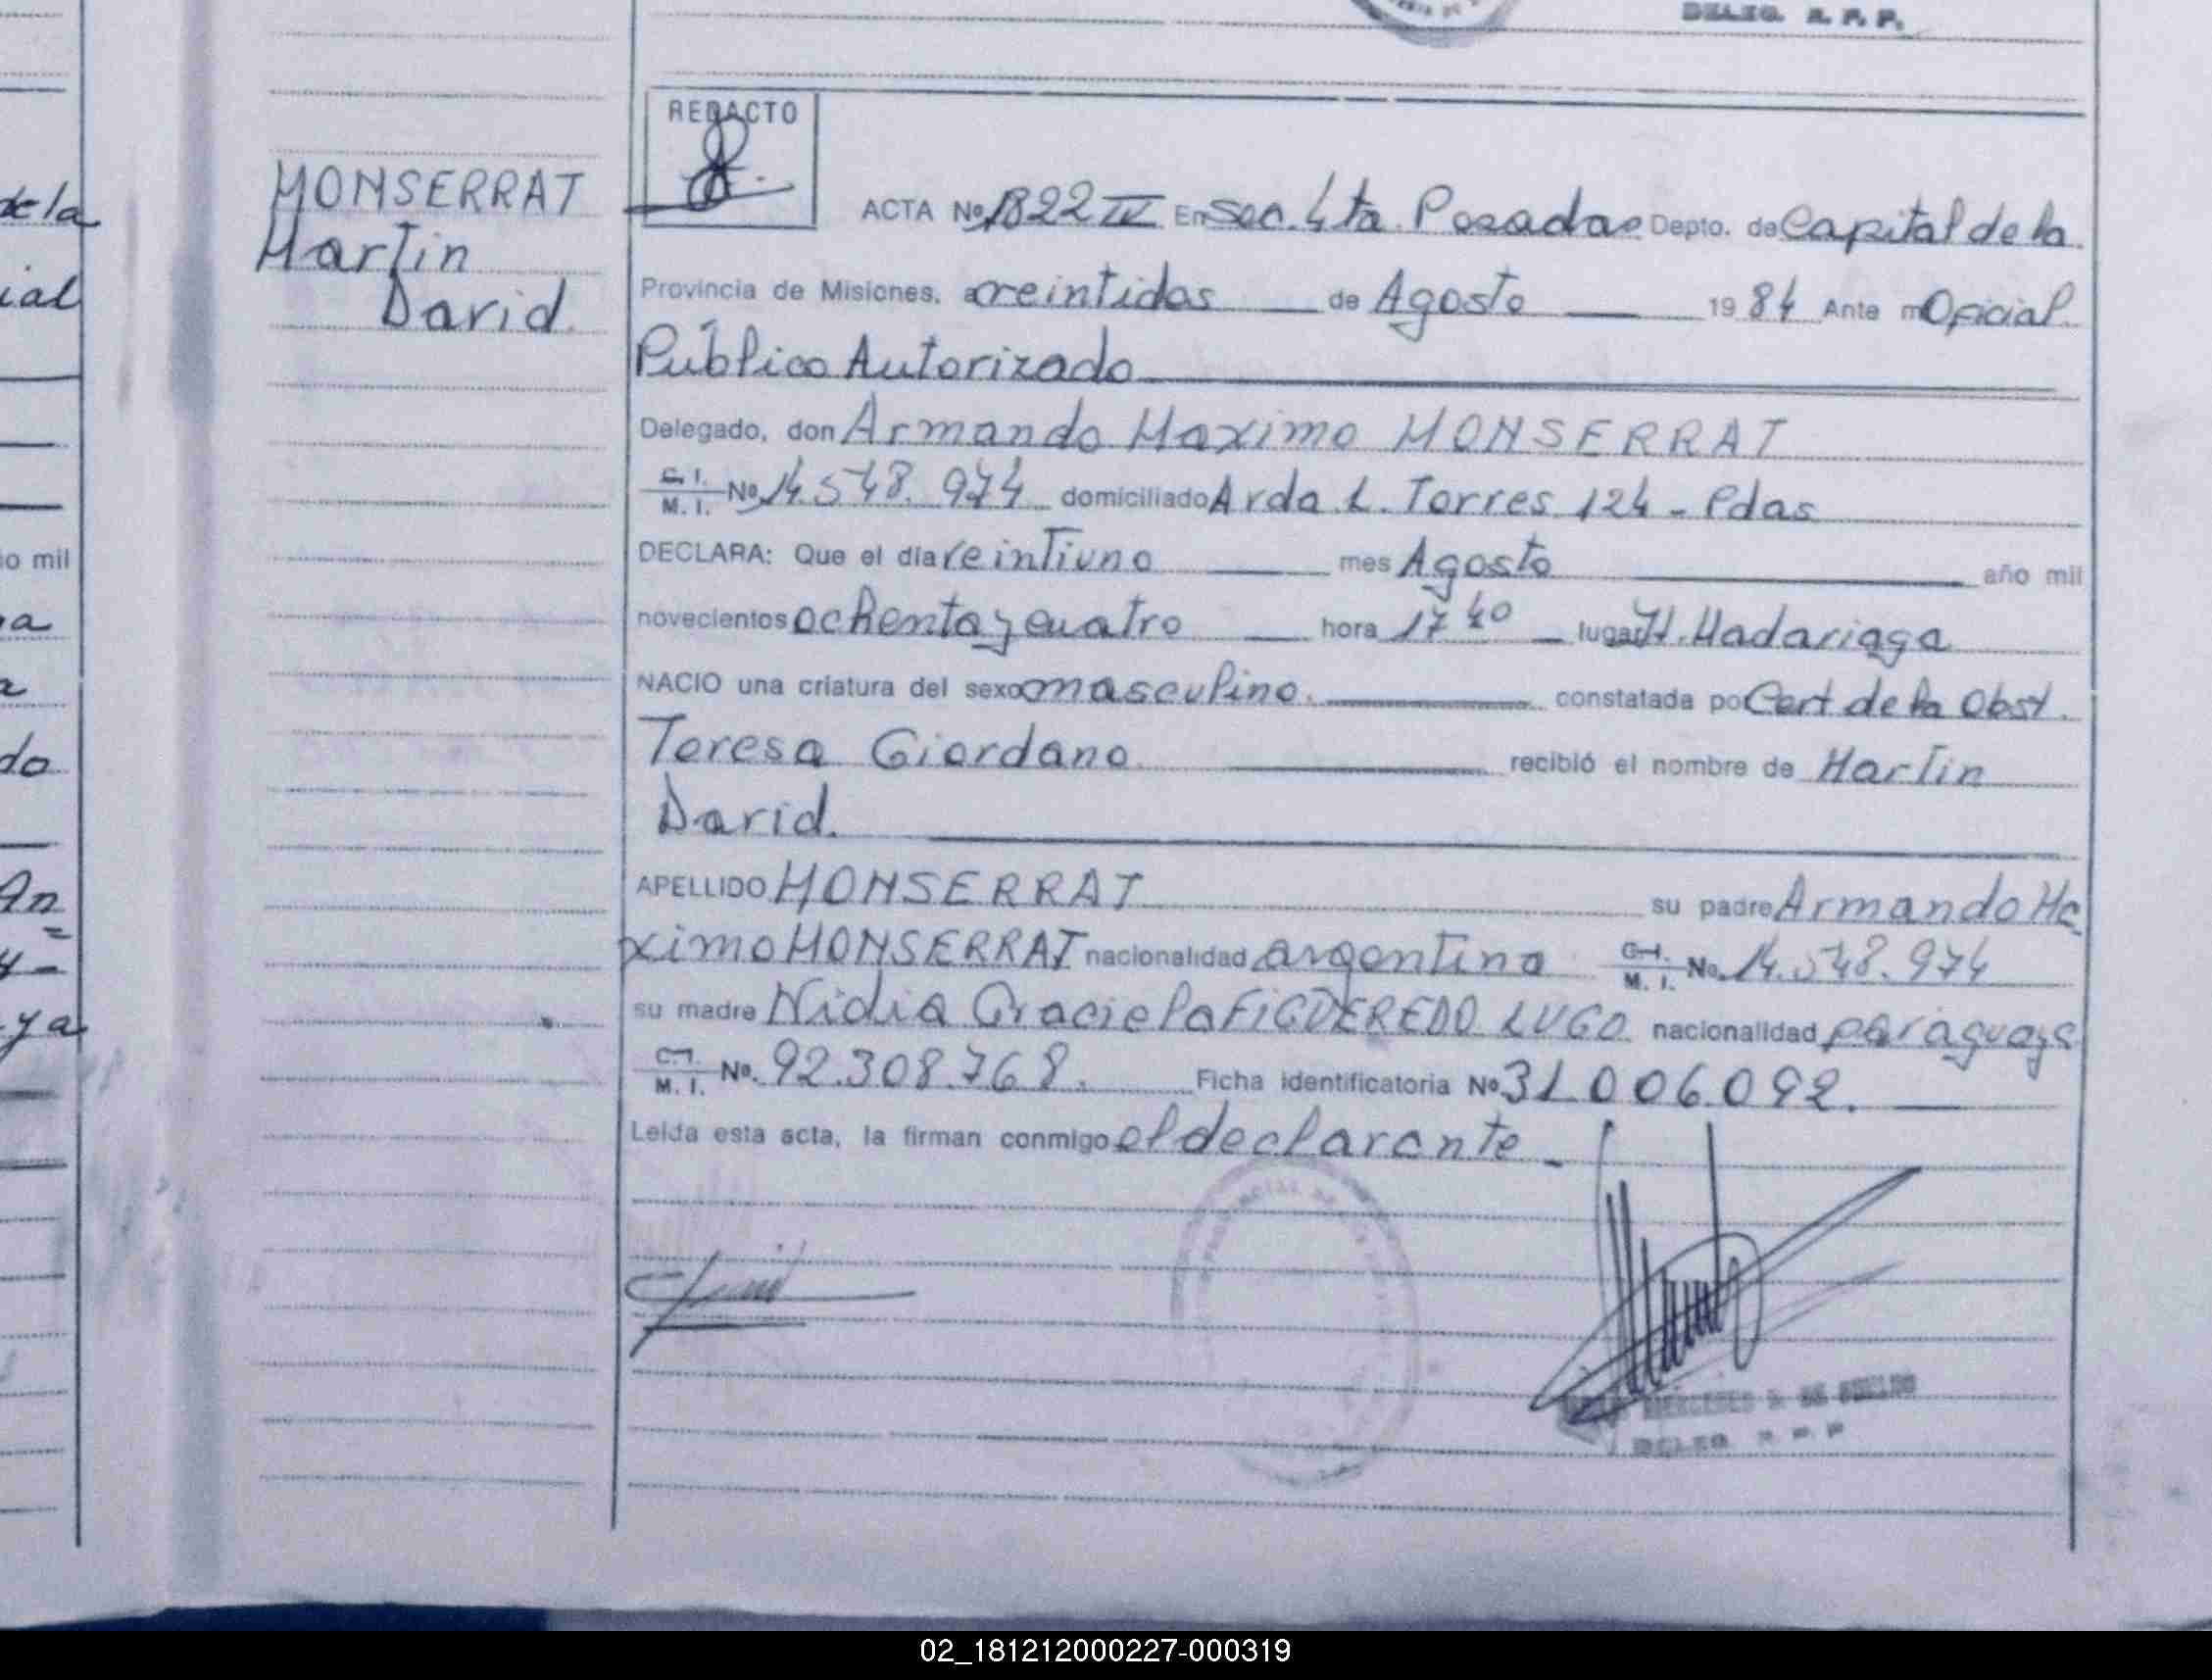 DELEG. R. P. P.
REDACTO
MONSERRAT
Martin
David.
ACTA Nº 1822 IV En Sec. 4ta. Posadas Depto. de Capital de la
Provincia de Misiones, a veintidos de Agosto 1984 Ante mi Oficial
Público Autorizado
Delegado, don Armando Maximo MONSERRAT
C. I.
M. I. Nº 14.548.974 domiciliado Avda. L. Torres 124 - Pdas
DECLARA: Que el día veintiuno mes Agosto año mil
novecientos ochenta y cuatro hora 17 40 lugar H. Madariaga
NACIO una criatura del sexo masculino. constatada por Cert de la Obst.
Teresa Giordano recibió el nombre de Martin
David.
APELLIDO MONSERRAT su padre Armando Ma
ximo MONSERRAT nacionalidad argentina C. I.
M. I. No. 14.548.974
su madre Nidia Graciela FIGUEREDO LUGO nacionalidad paraguaya
C. I.
M. I. Nº. 92.308.768. Ficha identificatoria Nº 31.006.092.
Leída esta acta, la firman conmigo el declarante -
MERCEDES DE
DELEG. R. P. P
de la
ial
io mil
a
do
An
=
ya
02_181212000227-000319